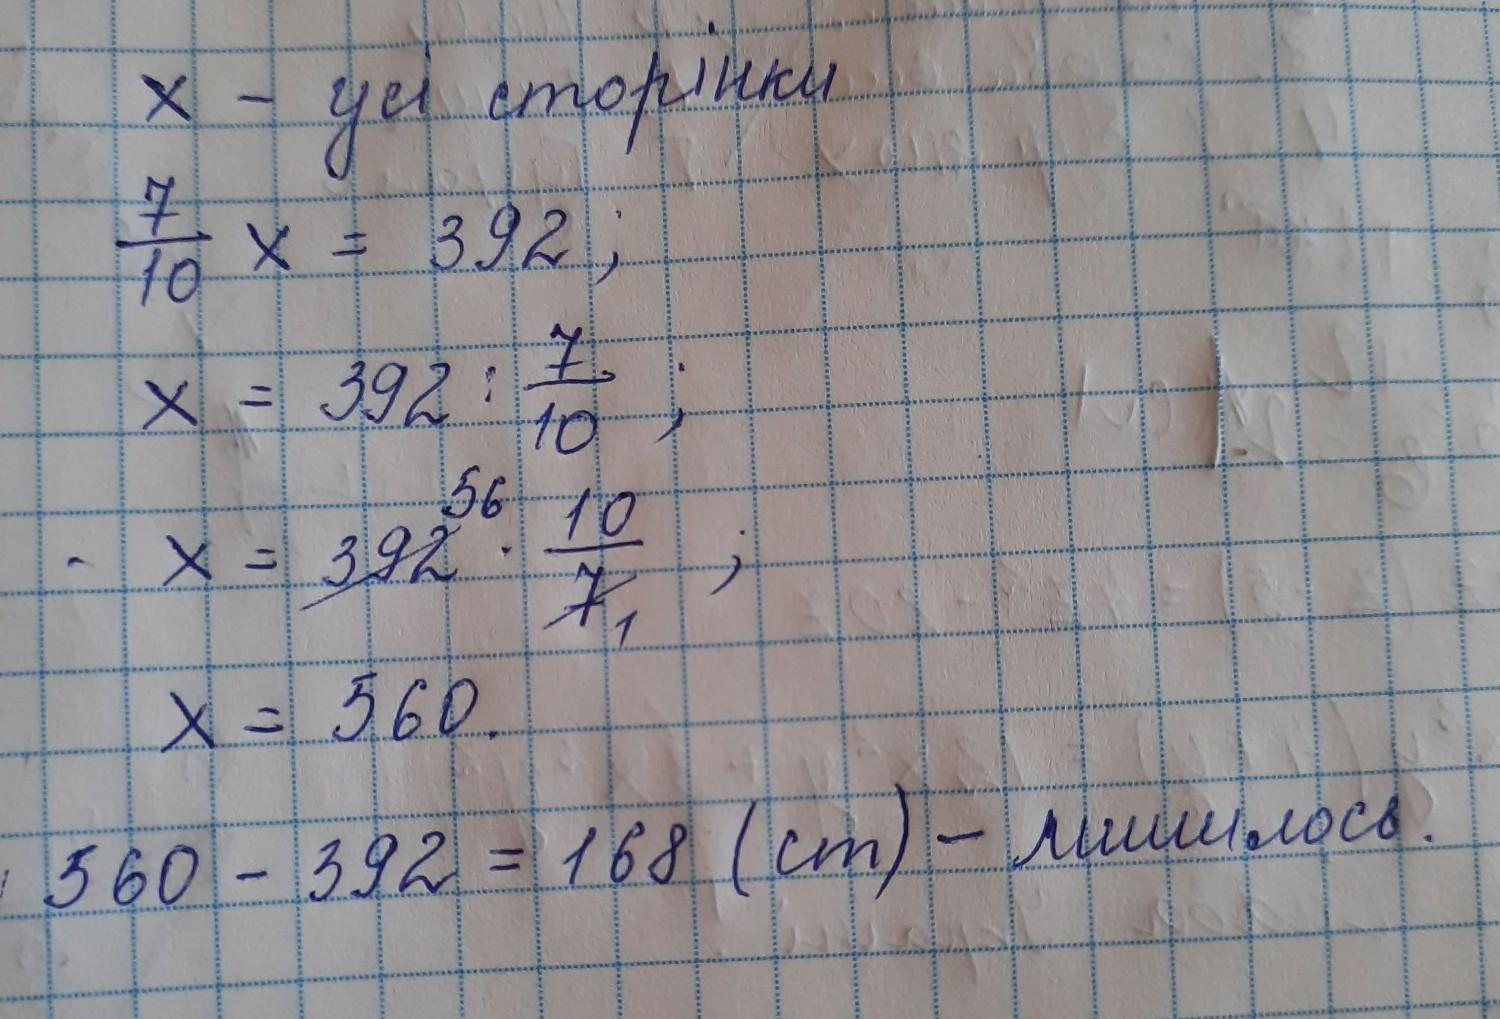 x - усі сторінки
7/10 x = 392;
x = 392 : 7/10 ;
x = 392 56 · 10/7 1 ;
x = 560.
560 - 392 = 168 (ст) - лишилось.